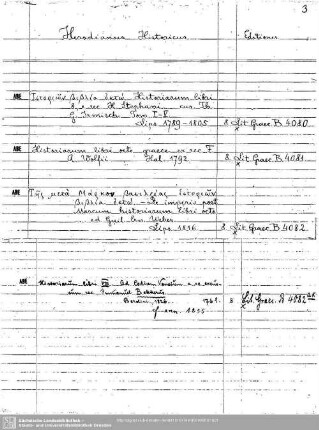 3
Herodianus Historicus Editiones
Ἱστοριῶν βιβλία ὀκτώ Historiarum libri
8 e rec. H. Stephani cur. Th.
G. Irmisch Tom I-V
Lips 1789-1805 8 Lit. Graec. B 4080
Historiarum libri octo graece ex rec. F.
A. Wolfii Hal. 1792 8 Lit. Graec. B 4081
Τῆς μετὰ Μάρκον βασιλείας ἱστοριῶν
βιβλία ὀκτώ - de imperio post
Marcum historiarum libri octo
ed. Guil. Weber
Lips. 1816 8 Lit. Graec. B 4082
Historiarum libri ad
rec. Immanuel Bekkerus
8 Lit. Graec. B 4082
1855